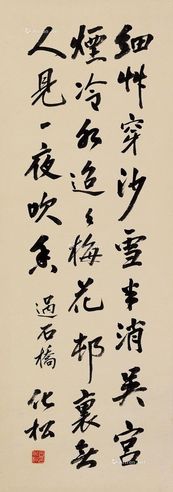 細艸穿沙雪半消吳宮
煙冷水迢々梅花邨裏無
人見一夜吹香
過石橋
化松